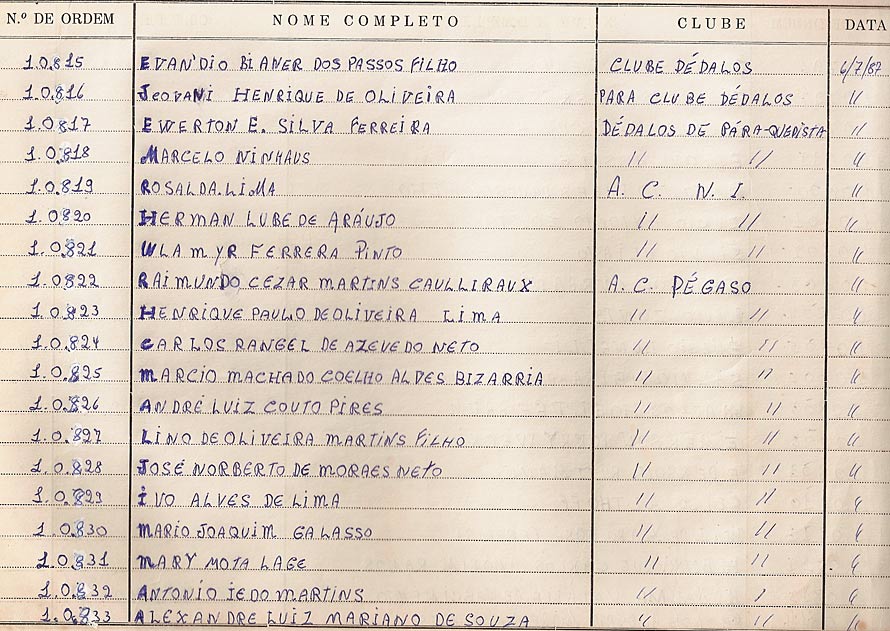 N.º DE ORDEM NOME COMPLETO CLUBE DATA
1.0.815 EVAN'DIO BIANER DOS PASSOS FILHO CLUBE DÉDALOS 6/7/87
1.0.816 JEOVANI HENRIQUE DE OLIVEIRA PARA CLUBE DÉDALOS //
1.0.817 EWERTON E. SILVA FERREIRA DÉDALOS DE PÁRA-QUEDISTA //
1.0.818 MARCELO NINHAUS // // //
1.0.819 ROSALDA.LIMA A. C. N. I. //
1.0.820 HERMAN LUBE DE ARÁUJO // // //
1.0.821 WLAMYR FERRERA PINTO // // //
1.0.822 RAIMUNDO CEZAR MARTINS CAULLIRAUX A. C. PÉGASO //
1.0.823 HENRIQUE PAULO DE OLIVEIRA LIMA // // //
1.0.824 CARLOS RANGEL DE AZEVEDO NETO // // //
1.0.825 MARCIO MACHADO COELHO ALVES BIZARRIA // // //
1.0.826 ANDRÉ LUIZ COUTO PIRES // // //
1.0.827 LINO DE OLIVEIRA MARTINS FILHO // // //
1.0.828 JOSÉ NORBERTO DE MORAES NETO // // //
1.0.829 IVO ALVES DE LIMA // // //
1.0.830 MARIO JOAQUIM GALASSO // // //
1.0.831 MARY MOTA LAGE // // //
1.0.832 ANTONIO IEDO MARTINS // // //
1.0.833 ALEXANDRE LUIZ MARIANO DE SOUZA // // //